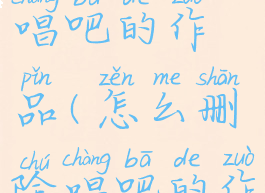 chàng bā de zuò
唱吧的作
pǐn zěn me shān
品(怎么删
chú chàng bā de zuò
除唱吧的作